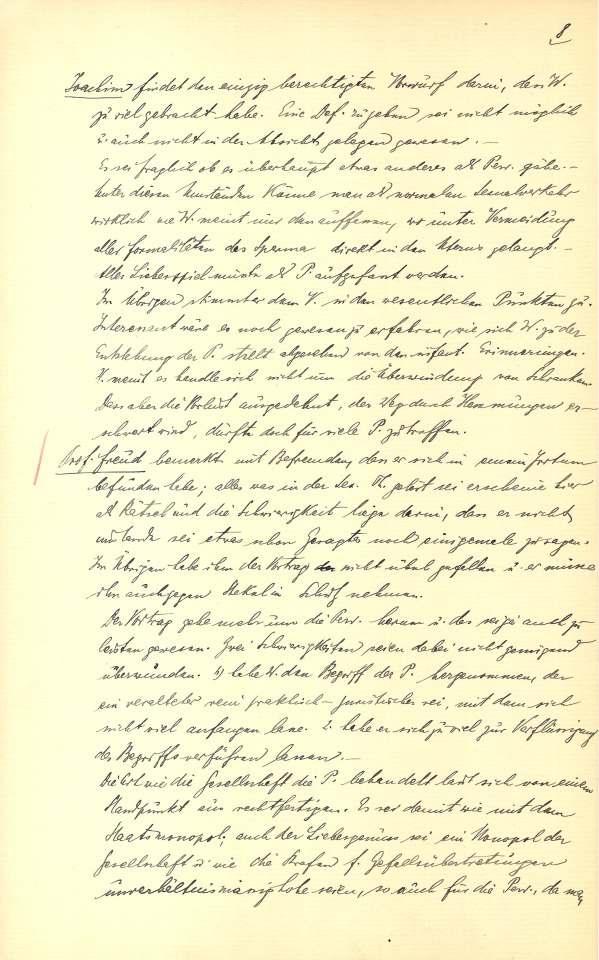 8
Joachim findet den einzig berechtigten Vorwurf darin, dass W.
zu viel gebracht habe. Eine Def. zu geben sei nicht möglich
u. auch nicht in der Absicht gelegen gewesen. –
Es sei fraglich ob es überhaupt etwas anderes als Perv. gäbe. –
Unter diesen Umständen könne man als normalen Sexualverkehr
wirklich wie W. meint nur den auffassen, wo unter Vermeidung
aller Formalitäten das Sperma direkt in den Uterus gelangt. –
Alles Liebesspiel müsste als P. aufgefasst werden.
Im Übrigen stimmt er dem V. in den wesentlichen Punkten zu.
Interessant wäre es noch gewesen zu erfahren, wie sich W. zu der
Entstehung der P. stellt abgesehen von den infant. Erinnerungen.
V. meint es handle sich nicht um die Überwindung von Schranken.
Dass aber die Vorlust ausgedehnt, der Weg durch Hemmungen er-
schwert wird, dürfte doch für viele P. zutreffen.
Prof. Freud bemerkt mit Befremden, dass er sich in einem Irrtum
befunden habe; alles was in der Sex. Th. gelöst sei erscheine hier
als Rätsel und die Schwierigkeit läge darin, dass er nicht
im stande sei etwas schon Gesagtes noch einigemale zu sagen.
Im Übrigen habe ihm der Vortrag nicht übel gefallen u. er müsse
ihn auch gegen Stekel in Schutz nehmen.
Der Vortrag gehe mehr um die Perv. herum u. das sei ja auch zu
leisten gewesen. Zwei Schwierigkeiten seien dabei nicht genügend
überwunden. 1) habe W. den Begriff der P. hergenommen, der
ein veralteter rein praktisch-juristischer sei, mit dem sich
nicht viel anfangen lasse. 2. habe er sich zu viel zur Verflüssigung
des Begriffs verführen lassen. –
Die Art wie die Gesellschaft die P. behandelt lässt sich von einem
Standpunkt aus rechtfertigen. Es sei damit wie mit dem
Staatsmonopol; auch der Liebesgenuss sei ein Monopol der
Gesellschaft u. wie die Strafen f. Gefällsübertretungen
unverhältnismässig hohe seien, so auch für die Perv., da man